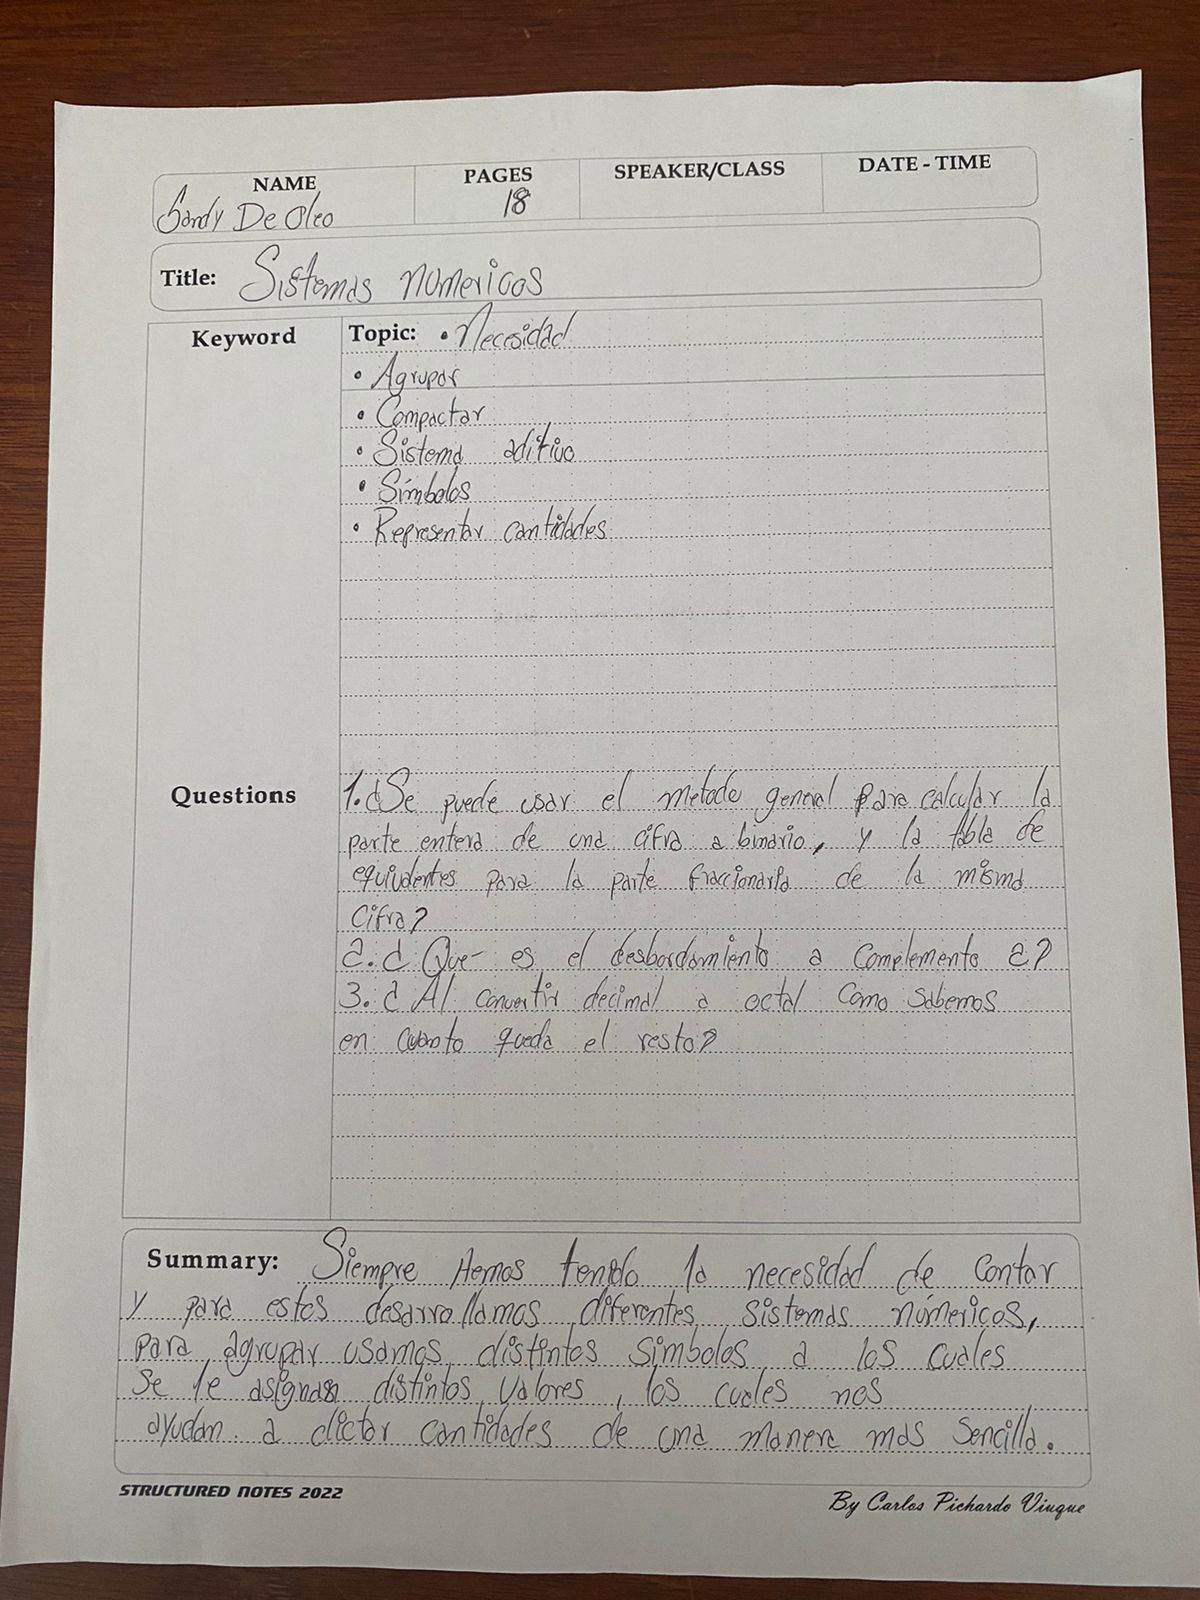 NAME PAGES SPEAKER/CLASS DATE - TIME
Sandy De Oleo 18
Title: Sistemas númericos
Keyword Topic: • Necesidad
• Agrupar
• Compactar
• Sistema aditivo
• Símbolos
• Representar cantidades
Questions 1. ¿Se puede usar el metodo general para calcular la
parte entera de una cifra a binario, y la tabla de
equivalentes para la parte fraccionaria de la misma
cifra?
2. ¿Que es el desbordamiento a complemento a 2?
3. ¿Al convertir decimal a octal como sabemos
en cuanto queda el resto?
Summary: Siempre Hemos tenido la necesidad de contar
y para estos desarrollamos diferentes sistemas númericos,
para agrupar usamos distintos simbolos a los cuales
se le asignan distintos valores, los cuales nos
ayudan a dictar cantidades de una manera mas sencilla.
STRUCTURED NOTES 2022 By Carlos Pichardo Viuque